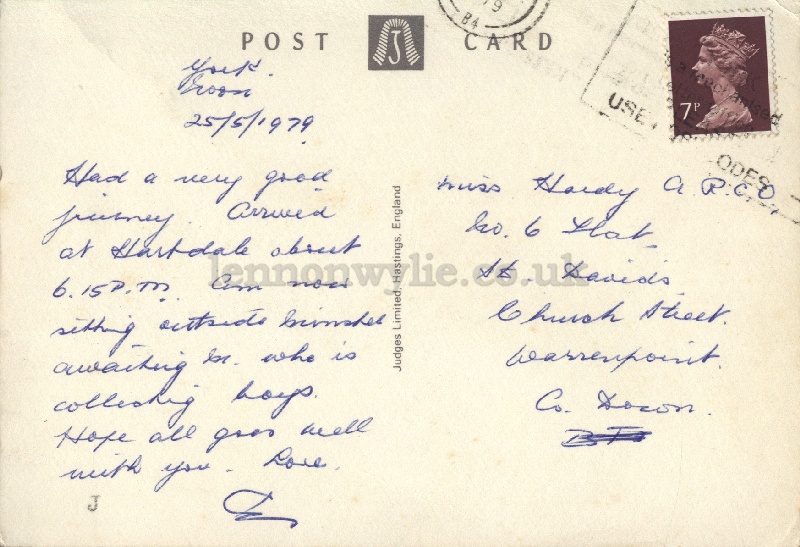 POST CARD
York.
Noon
25/5/1979
Had a very good
journey. Arrived
at Hartdale about
6.15 P.M. Am now
sitting outside Minster
awaiting M. who is
collecting boys.
Hope all goes well
with you. Love.
J
Judges Limited, Hastings, England
lennonwylie.co.uk
79
84
7P
USE
ODES
Miss Hardy A.R.C.O,
No. 6 Flat
St. Davids
Church Street.
Warrenpoint.
Co. Down.